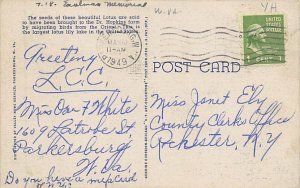 7-18- Memorial
W-VA
YH
The seeds of these beautiful Lotus are said
to have been brought to the Dr. Hopkins farm
by migrating birds from the Orient. This is
the largest lotus lily lake in the United States.
11-AM
1949
1 CENT 1
POST CARD
Greeting
L.C.C.
Miss Dar F White
1609 Latrobe St.
Parkersburg
W.Va.
Do you have a
Miss Janet Ely
County Clerks Office
Rochester, N.Y